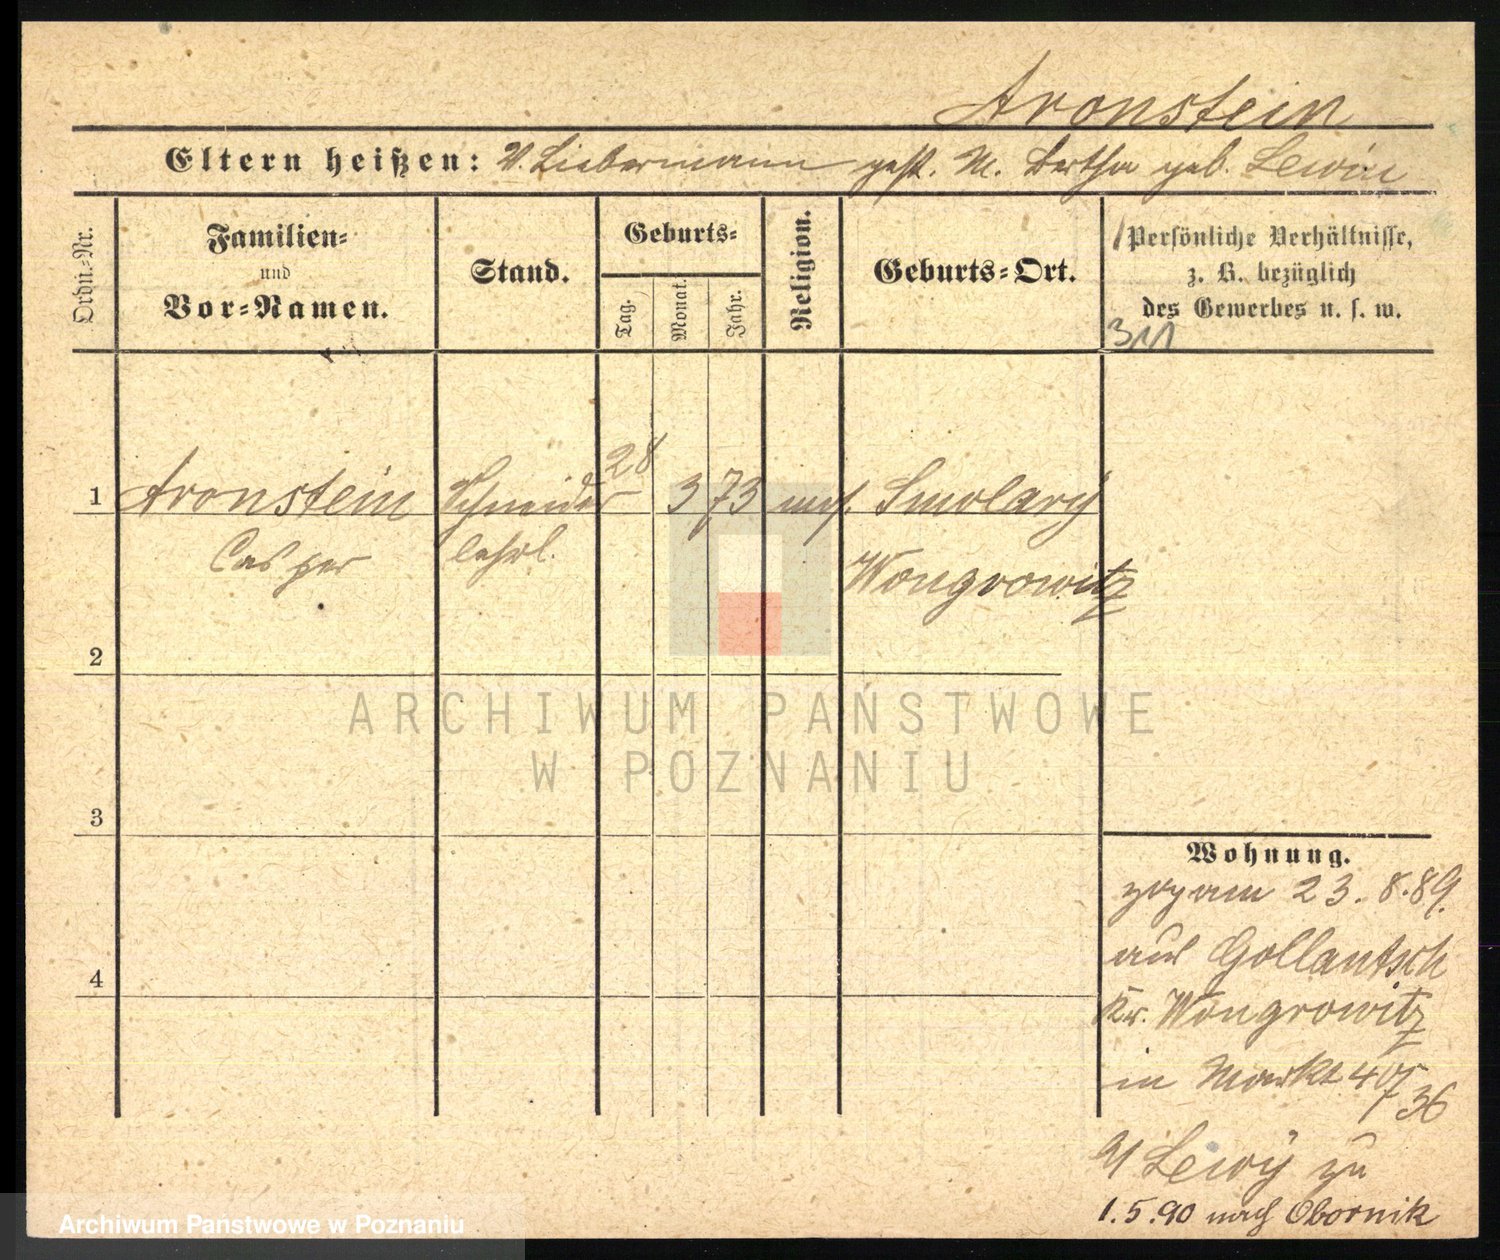 Aronstein
Eltern heißen: V. Liebermann gest. M. Bertha geb. Lewin
Ordn.-Nr.
Familien-
und
Vor-Namen.
Stand.
Geburts-
Tag.
Monat.
Jahr.
Religion.
Geburts-Ort.
Persönliche Verhältnisse,
z. B. bezüglich
des Gewerbes u. s. w.
1 Aronstein Schneider 28 3 73 mos. Smolary
Casper lehrl. Wongrowitz
2
3
4
Wohnung.
zog am 23. 8. 89.
aus Gollantsch
Kr. Wongrowitz
in Markt 40
36
Lewy zu
1. 5. 90 nach Obornik
ARCHIWUM PAŃSTWOWE
W POZNANIU
Archiwum Państwowe w Poznaniu